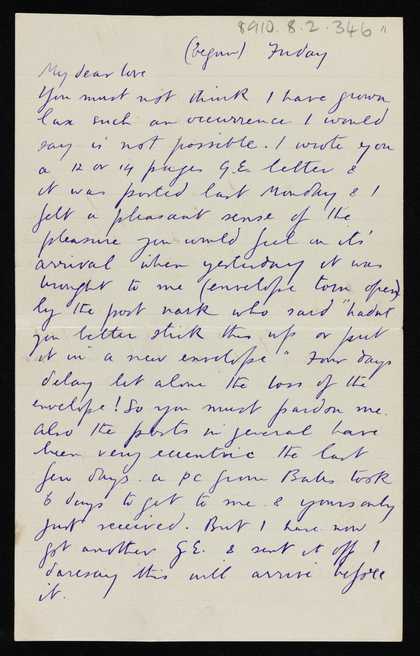 8910.8.2.346
(begun) Friday
My dear love
You must not think I have grown
lax such an occurrence I would
say is not possible. I wrote you
a 12 or 14 pages G.E. letter &
it was posted last Monday & I
felt a pleasant sense of the
pleasure you would feel on its'
arrival when yesterday it was
brought to me (envelope torn open)
by the post nark who said "hadnt
you better stick this up or put
it in a new envelope" Four days
delay let alone the loss of the
envelope! So you must pardon me.
Also the posts in general have
been very eccentric the last
few days. a pc from Babs took
6 days to get to me & yours only
just received. But I have now
got another G.E. & sent it off I
daresay this will arrive before
it.